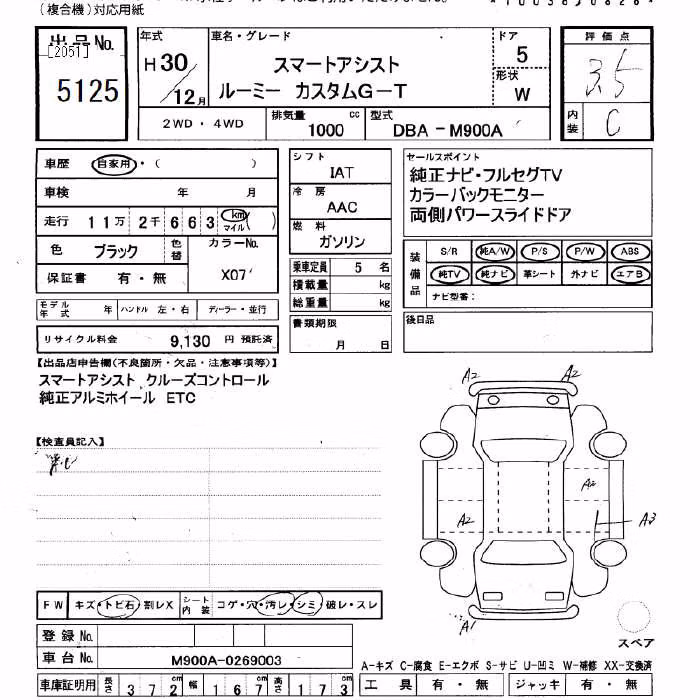 (複合機)対応用紙
出品No.
[2051]
5125
年式
H30/12月
車名・グレード
スマートアシスト
ルーミー カスタムG-T
ドア
5
形状
W
2WD・4WD
排気量
1000 cc
型式
DBA-M900A
評価点
3.5
内装
C
車歴
自家用・( )
車検 年 月
走行 11万 2千 6 6 3 km マイル ( )
色 ブラック 色替
カラーNo.
X07
保証書 有・無
シフト
IAT
冷房
AAC
燃料
ガソリン
乗車定員 5 名
積載量 kg
総重量 kg
セールスポイント
純正ナビ・フルセグTV
カラーバックモニター
両側パワースライドドア
装備品
S/R 純A/W P/S P/W ABS
純TV 純ナビ 革シート 外ナビ エアB
ナビ型番:
モデル年式 年 ハンドル 左・右 ディーラー・並行
リサイクル料金 9,130 円 預託済
書類期限
月 日
後日品
【出品店申告欄(不良箇所・欠品・注意事項等)】
スマートアシスト クルーズコントロール
純正アルミホイール ETC
【検査員記入】
A2 A2
A2
A2
A3
A1
スペア
FW キズ・トビ石・割レX
シート内装 コゲ・穴・汚レ・シミ・破レ・スレ
登録No.
車台No. M900A-0269003
車庫証明用 長さ 372cm 幅 167cm 高さ 173
A-キズ C-腐食 E-エクボ S-サビ U-凹ミ W-補修 XX-交換済
工具 有・無 ジャッキ 有・無